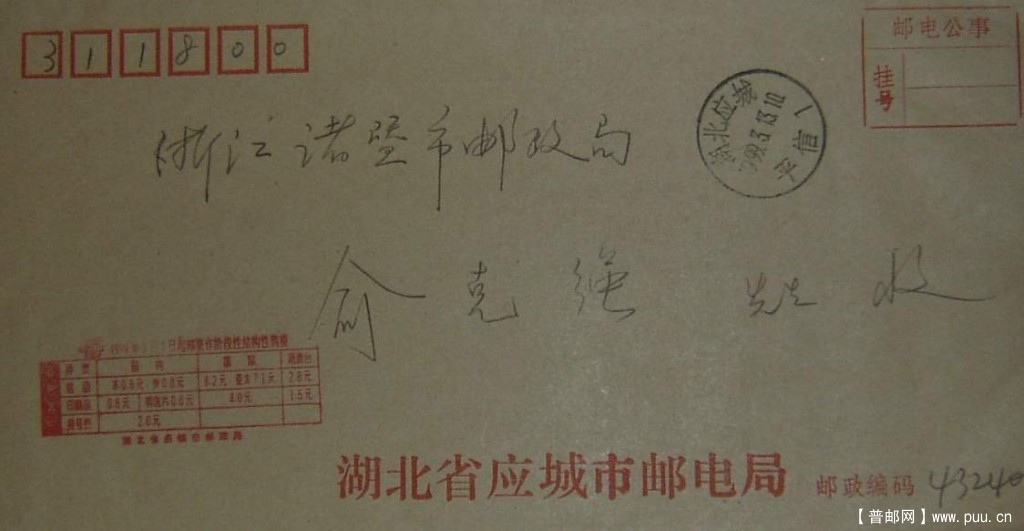 311800
邮电公事
挂号
湖北应城
1999.3.13.10
平信1
浙江诸暨市邮政局
俞克强 先生 收
种类 国内 国际 港澳台
信函 本0.6元 外0.8元 2.8元
印刷品 4.0元 1.5元
挂号费 2.0元
湖北省应城市邮电局
湖北省应城市邮电局 邮政编码 43240
【普邮网】www.puu.cn